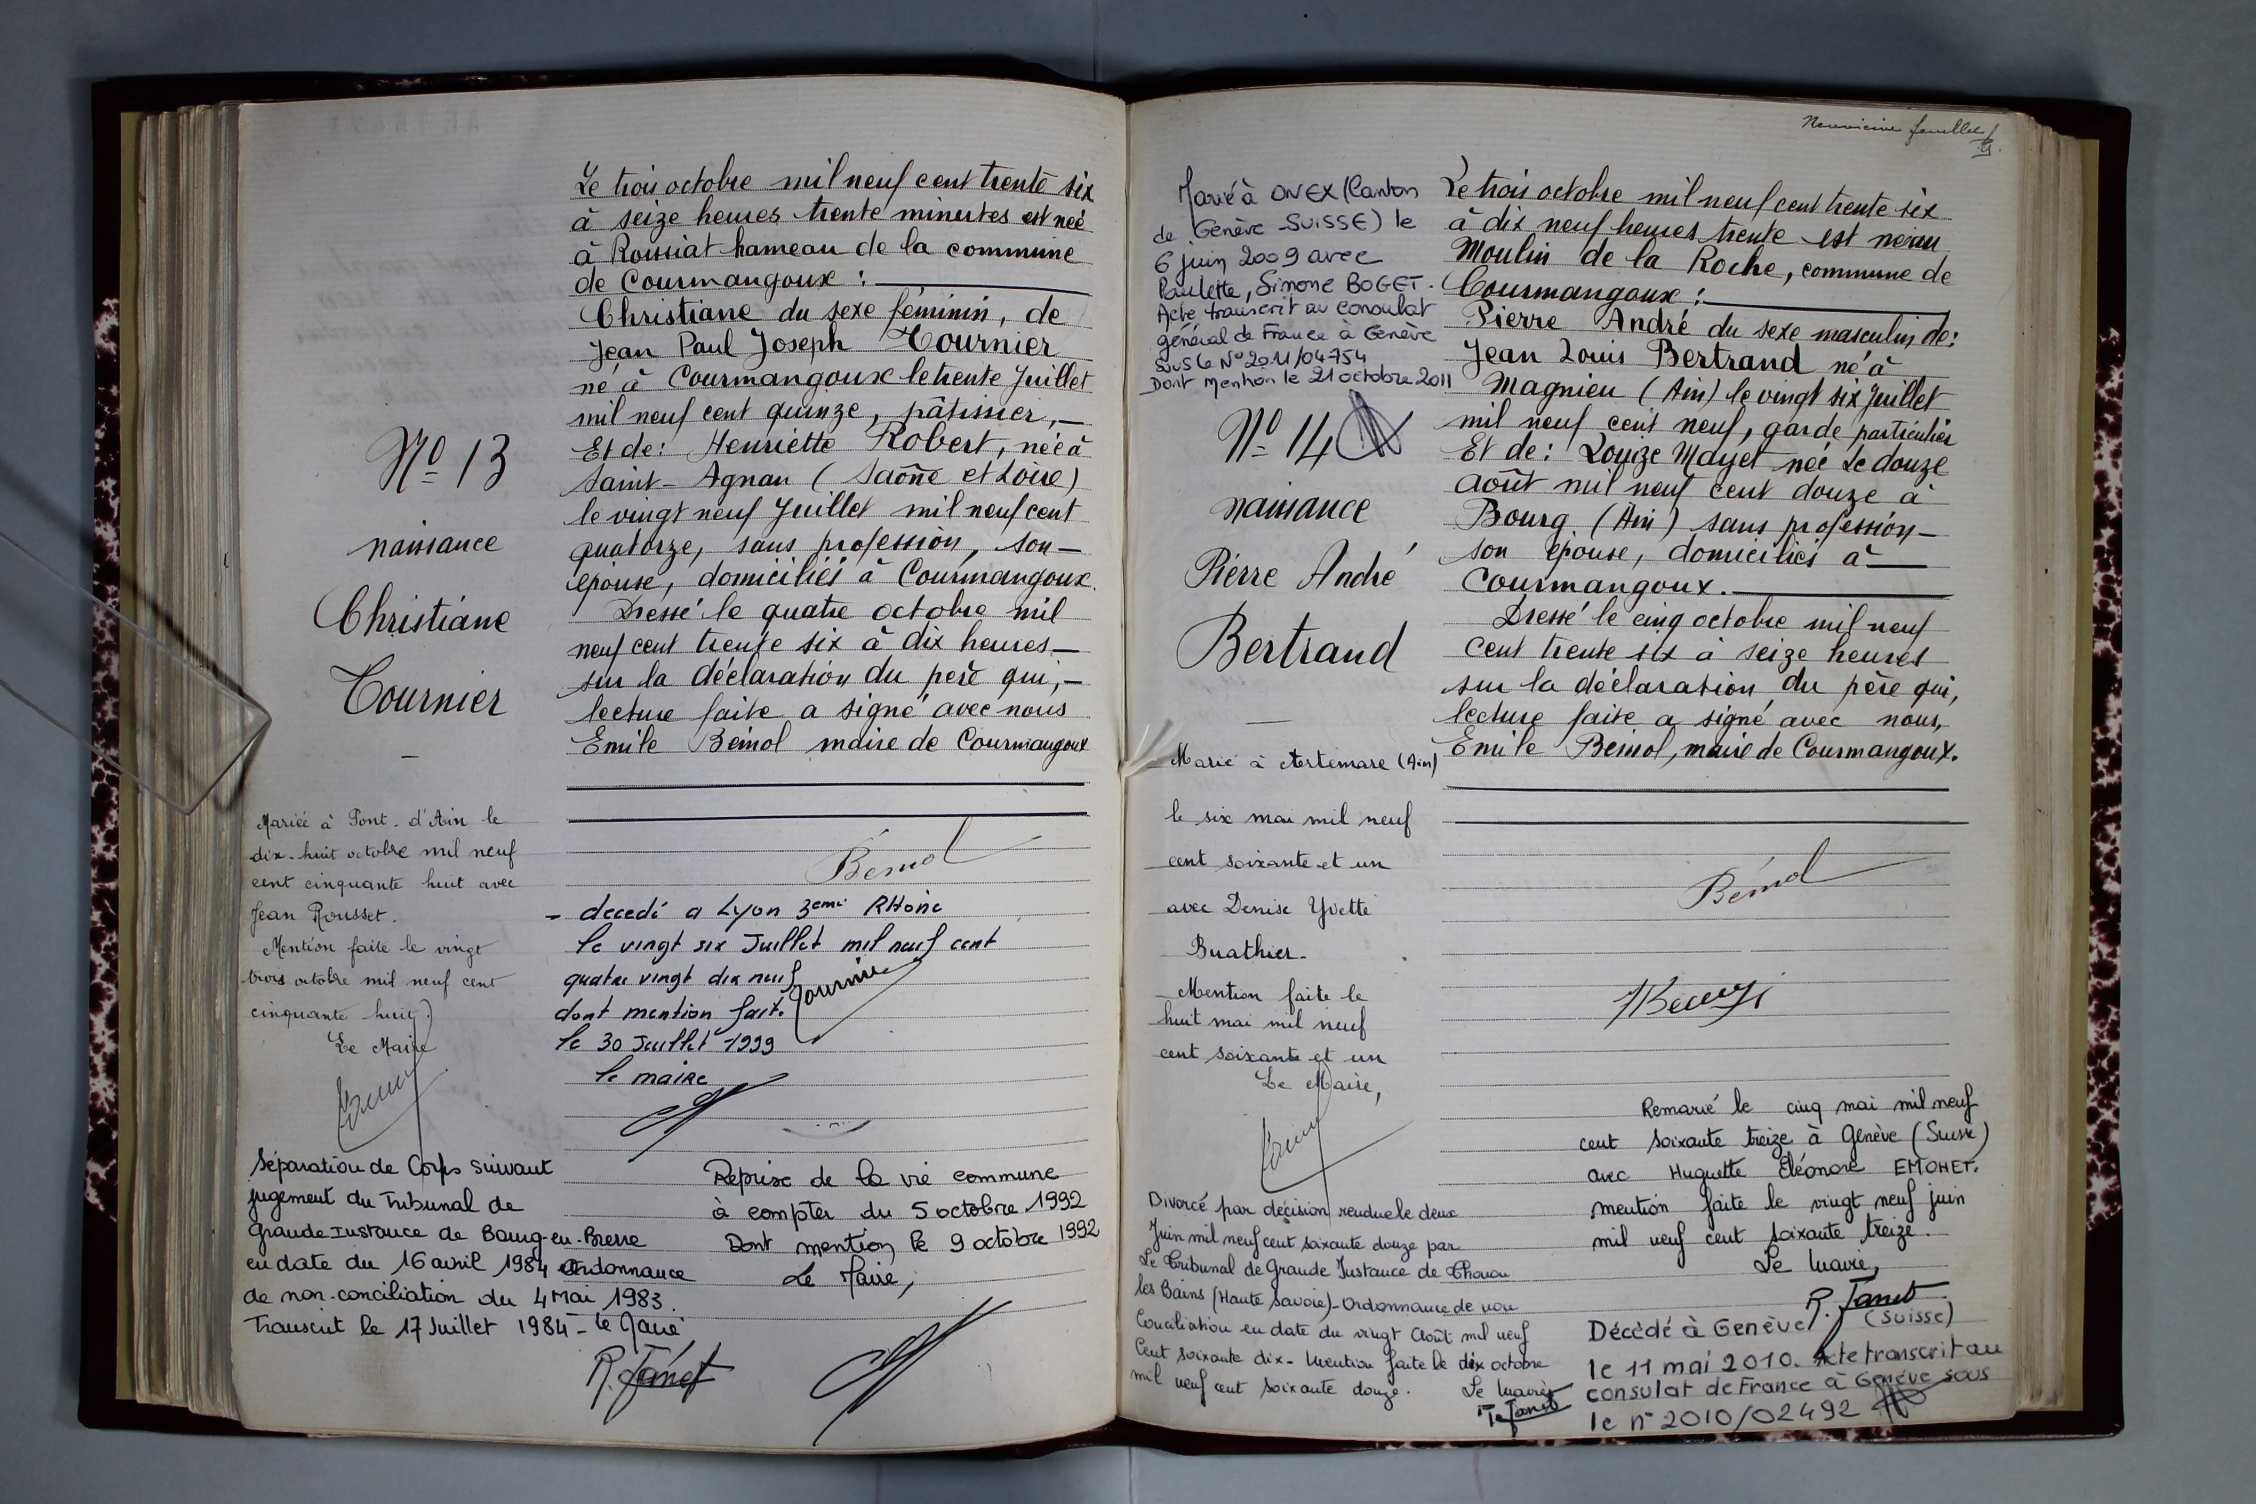 Le trois octobre mil neuf cent trente six
à seize heures trente minutes est née
à Roissiat hameau de la commune
de Courmangoux :
Christiane du sexe féminin, de
Jean Paul Joseph Tournier
né à Courmangoux le trente Juillet
mil neuf cent quinze, pâtissier,
Et de : Henriette Robert, née à
Saint-Agnan (Saône et Loire)
le vingt neuf Juillet mil neuf cent
quatorze, sans profession, son
épouse, domiciliés à Courmangoux.
Dressé le quatre octobre mil
neuf cent trente six à dix heures
sur la déclaration du père qui,
lecture faite a signé avec nous
Emile Bémol maire de Courmangoux
Bémol
Tournier
Nº 13
naissance
Christiane
Tournier
Mariée à Pont-d'Ain le
dix-huit octobre mil neuf
cent cinquante huit avec
Jean Rousset.
Mention faite le vingt
trois octobre mil neuf cent
cinquante huit.
Le Maire
Séparation de Corps suivant
jugement du Tribunal de
Grande Instance de Bourg-en-Bresse
en date du 16 avril 1984 Ordonnance
de non-conciliation du 4 Mai 1983.
Transcrit le 17 Juillet 1984 - Le Maire
R. Janet
- decedé a Lyon 3eme RHône
le vingt six Juillet mil neuf cent
quatre vingt dix neuf
dont mention faite
le 30 Juillet 1999
le maire
Reprise de la vie commune
à compter du 5 octobre 1992
Dont mention le 9 octobre 1992
Le Maire,
Neuvième feuillet
Marié à ONEX (Canton
de Genève - SUISSE) le
6 juin 2009 avec
Paulette, Simone BOGET.
Acte transcrit au consulat
général de France à Genève
sous le Nº 2011/04754
Dont mention le 21 octobre 2011
Nº 14
naissance
Pierre André
Bertrand
Marié à Artemare (Ain)
le six mai mil neuf
cent soixante et un
avec Denise Yvette
Buathier.
Mention faite le
huit mai mil neuf
cent soixante et un
Le Maire,
Divorcé par décision rendue le deux
Juin mil neuf cent soixante douze par
Le Tribunal de Grande Instance de Thonon
les Bains (Haute Savoie) - Ordonnance de non
Conciliation en date du vingt Août mil neuf
Cent soixante dix - Mention faite le dix octobre
mil neuf cent soixante douze. Le Maire
R. Janet
Le trois octobre mil neuf cent trente six
à dix neuf heures trente est né au
Moulin de la Roche, commune de
Courmangoux :
Pierre André du sexe masculin de :
Jean Louis Bertrand né à
Magnieu (Ain) le vingt six Juillet
mil neuf cent neuf, garde particulier
Et de : Louize Mayet née Le douze
août mil neuf cent douze à
Bourg (Ain) sans profession
son épouse, domiciliés à
Courmangoux.
Dressé le cinq octobre mil neuf
cent trente six à seize heures
sur la déclaration du père qui,
lecture faite a signé avec nous,
Emile Bémol, maire de Courmangoux.
Bémol
Remarié le cinq mai mil neuf
cent soixante treize à Genève (Suisse)
avec Huguette Eléonore EMONET.
mention faite le vingt neuf juin
mil neuf cent soixante treize.
Le Maire,
R. Janet
Décédé à Genève (Suisse)
le 11 mai 2010. Acte transcrit au
consulat de France à Genève sous
le n° 2010/02492